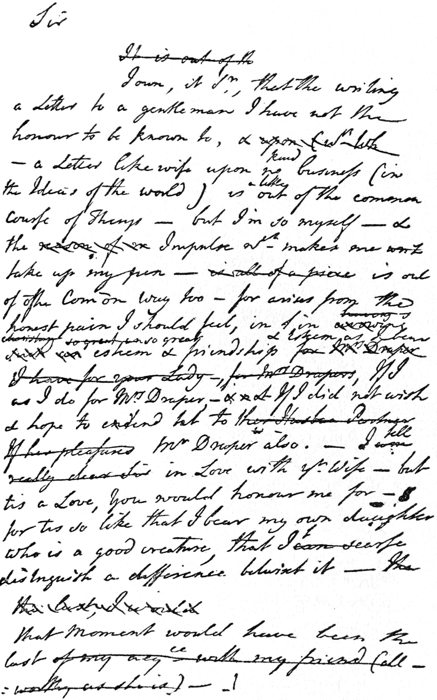 Sir
It is out of th
I own, it Sr., that the writing
a Letter to a gentleman I have not the
honour to be known to, &
kind
– a Letter likewise upon no business (in
alike
the Ideas of the world) is out of the common
Course of Things – but I'm so myself – &
the of Impulse wch makes me
take up my pen – is all of a piece is out
of the Com on way too – for arises from the
having
honest pain I should feel, in
so great
esteem & friendship for Mrs Draper
I have for your Lady, for Mrs Drapers, If I
as I do for Mrs Draper – If I did not wish
& hope to extend it to
If he pleases Mr Draper also. – I
tell
really dear Sir in Love with yr Wife – but
tis a Love, You would honour me for –
for tis so like that I bear my own daughter
who is a good creature, that I can scarse
distinguish a difference betwixt it – The
that Moment would have been the
last of my acqce with my friend (all-
worthy as she is) – !